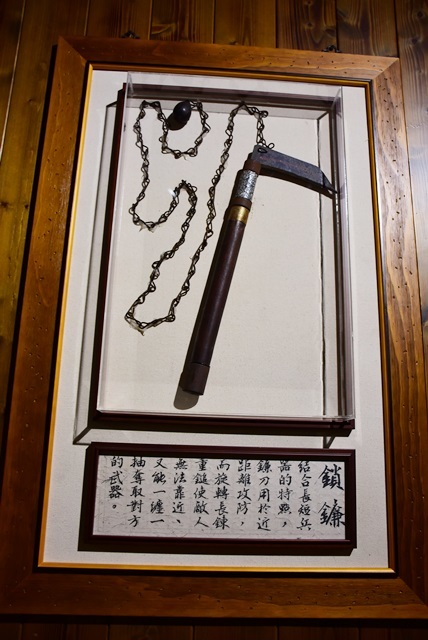 鎖鐮
結合長短兵
器的特點，
鐮刀用於近
距離攻防，
而旋轉長鍊
重鎚使敵人
無法靠近、
又能一纏一
抽奪取對方
的武器。